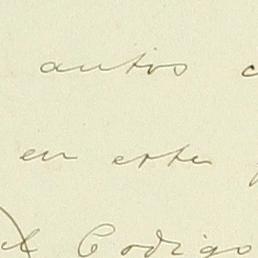 autos
en este
el Codigo